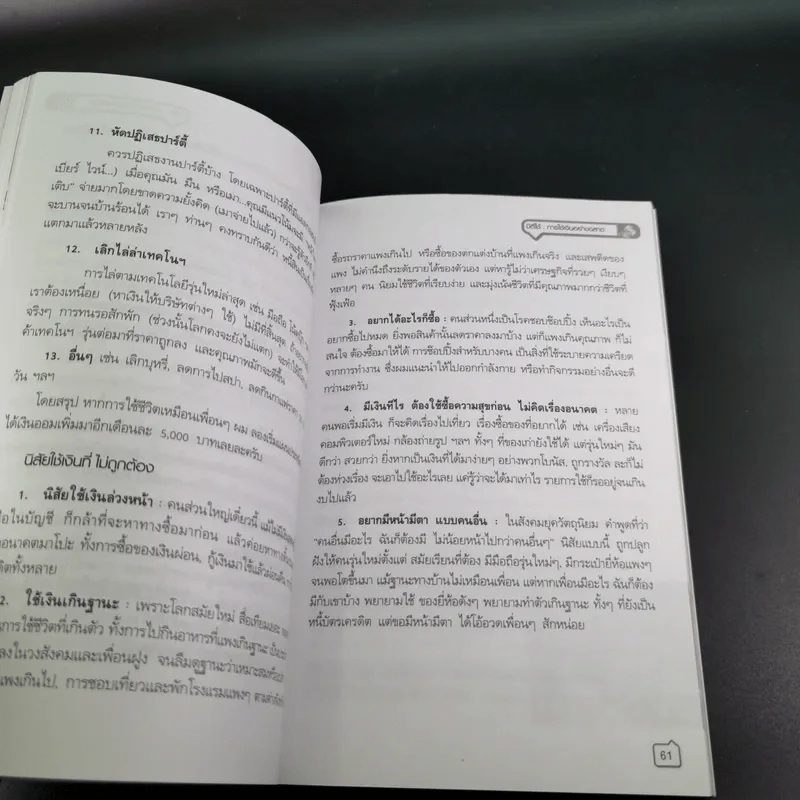 11. หัดปฏิเสธปาร์ตี้
ควรปฏิเสธงานปาร์ตี้บ้าง โดยเฉพาะปาร์ตี้ที่มี
เบียร์ ไวน์...) เมื่อคุณมัน มึน หรือเมา...คุณมีแนวโน้มจะมี
เติบ" จ่ายมากโดยขาดความยั้งคิด (เมาจ่ายไปแล้ว) กว่าจะรู้ตัว
จะบานจนบ้านร้อนได้ เราๆ ท่านๆ คงทราบกันดีว่า หนี้สิน
แตกมาแล้วหลายหลัง
12. เลิกไล่ล่าเทคโนฯ
การไล่ตามเทคโนโลยีรุ่นใหม่ล่าสุด เช่น มือถือ โน้ตบุ๊ก
เราต้องเหนื่อย (หาเงินให้บริษัทต่างๆ ใช้) ไม่มีที่สิ้นสุด ถ้า
จริงๆ การทนรอสักพัก (ช่วงนั้นโลกคงจะยังไม่แตก) จะทำให้
ค้าเทคโนฯ รุ่นต่อมาที่ราคาถูกลง และคุณภาพมักจะดีขึ้น
13. อื่นๆ เช่น เลิกบุหรี่, ลดการไปสปา, ลดกินกาแฟ
วัน ฯลฯ
โดยสรุป หากการใช้ชีวิตเหมือนเพื่อนๆ ผม ลองเริ่ม
ได้เงินออมเพิ่มมาอีกเดือนละ 5,000 บาทเลยละครับ
นิสัยใช้เงินที่ ไม่ถูกต้อง
1. นิสัยใช้เงินล่วงหน้า : คนส่วนใหญ่เดี๋ยวนี้ แม้ไม่มีเงิน
อในบัญชี ก็กล้าที่จะหาทางซื้อมาก่อน แล้วค่อยหาทาง
อนาคตมาโปะ ทั้งการซื้อของเงินผ่อน, กู้เงินมาใช้แล้วผ่อน
ดิตทั้งหลาย
2. ใช้เงินเกินฐานะ : เพราะโลกสมัยใหม่ สื่อเทียม
การใช้ชีวิตที่เกินตัว ทั้งการไปกินอาหารที่แพงเกินฐานะ
ลงในวงสังคมและเพื่อนฝูง จนลืมดูฐานะว่าเหมาะสมหรือ
แพงเกินไป, การชอบเที่ยวและพักโรงแรมแพงๆ ตาม
นิสัยใช้ : การใช้เงินอย่างฉลาด
ซื้อรถราคาแพงเกินไป หรือซื้อของตกแต่งบ้านที่แพงเกินจริง และเสพติดของ
แพง ไม่คำนึงถึงระดับรายได้ของตัวเอง แต่หารู้ไม่ว่าเศรษฐีที่รวยๆ เงียบๆ
หลายๆ คน นิยมใช้ชีวิตที่เรียบง่าย และมุ่งเน้นชีวิตที่มีคุณภาพมากกว่าชีวิตที่
ฟุ้งเฟ้อ
3. อยากได้อะไรก็ซื้อ : คนส่วนหนึ่งเป็นโรคชอบช๊อปปิ้ง เห็นอะไรเป็น
อยากซื้อไปหมด ยิ่งพอสินค้านั้นลดราคาลงมาบ้าง แต่ก็แพงเกินคุณภาพ ก็ไม่
สนใจ ต้องซื้อมาให้ได้ การช๊อปปิ้งสำหรับบางคน เป็นสิ่งที่ใช้ระบายความเครียด
จากการทำงาน ซึ่งผมแนะนำให้ไปออกกำลังกาย หรือทำกิจกรรมอย่างอื่นจะดี
กว่านะครับ
4. มีเงินทีไร ต้องใช้ซื้อความสุขก่อน ไม่คิดเรื่องอนาคต : หลาย
คนพอเริ่มมีเงิน ก็จะคิดเรื่องไปเที่ยว เรื่องซื้อของที่อยากได้ เช่น เครื่องเสียง
คอมพิวเตอร์ใหม่ กล้องถ่ายรูป ฯลฯ ทั้งๆ ที่ของเก่ายังใช้ได้ แต่รุ่นใหม่ๆ มัน
ดีกว่า สวยกว่า ยิ่งหากเป็นเงินที่ได้มาง่ายๆ อย่างพวกโบนัส, ถูกรางวัล ละก็ไม่
ต้องห่วงเรื่อง จะเอาไปใช้อะไรเลย แค่รู้ว่าจะได้มาเท่าไร รายการใช้ก็รออยู่จนเกิน
งบไปแล้ว
5. อยากมีหน้ามีตา แบบคนอื่น : ในสังคมยุควัตถุนิยม คำพูดที่ว่า
"คนอื่นมีอะไร ฉันก็ต้องมี ไม่น้อยหน้าไปกว่าคนอื่นๆ" นิสัยแบบนี้ ถูกปลูก
ฝังให้คนรุ่นใหม่ตั้งแต่ สมัยเรียนที่ต้อง มีมือถือรุ่นใหม่ๆ, มีกระเป๋ายี่ห้อแพงๆ
จนพอโตขึ้นมา แม้ฐานะทางบ้านไม่เหมือนเพื่อน แต่หากเพื่อนมีอะไร ฉันก็ต้อง
มีกับเขาบ้าง พยายามใช้ ของยี่ห้อดังๆ พยายามทำตัวเกินฐานะ ทั้งๆ ที่ยังเป็น
หนี้บัตรเครดิต แต่ขอมีหน้ามีตา ได้โอ้อวดเพื่อนๆ สักหน่อย
61